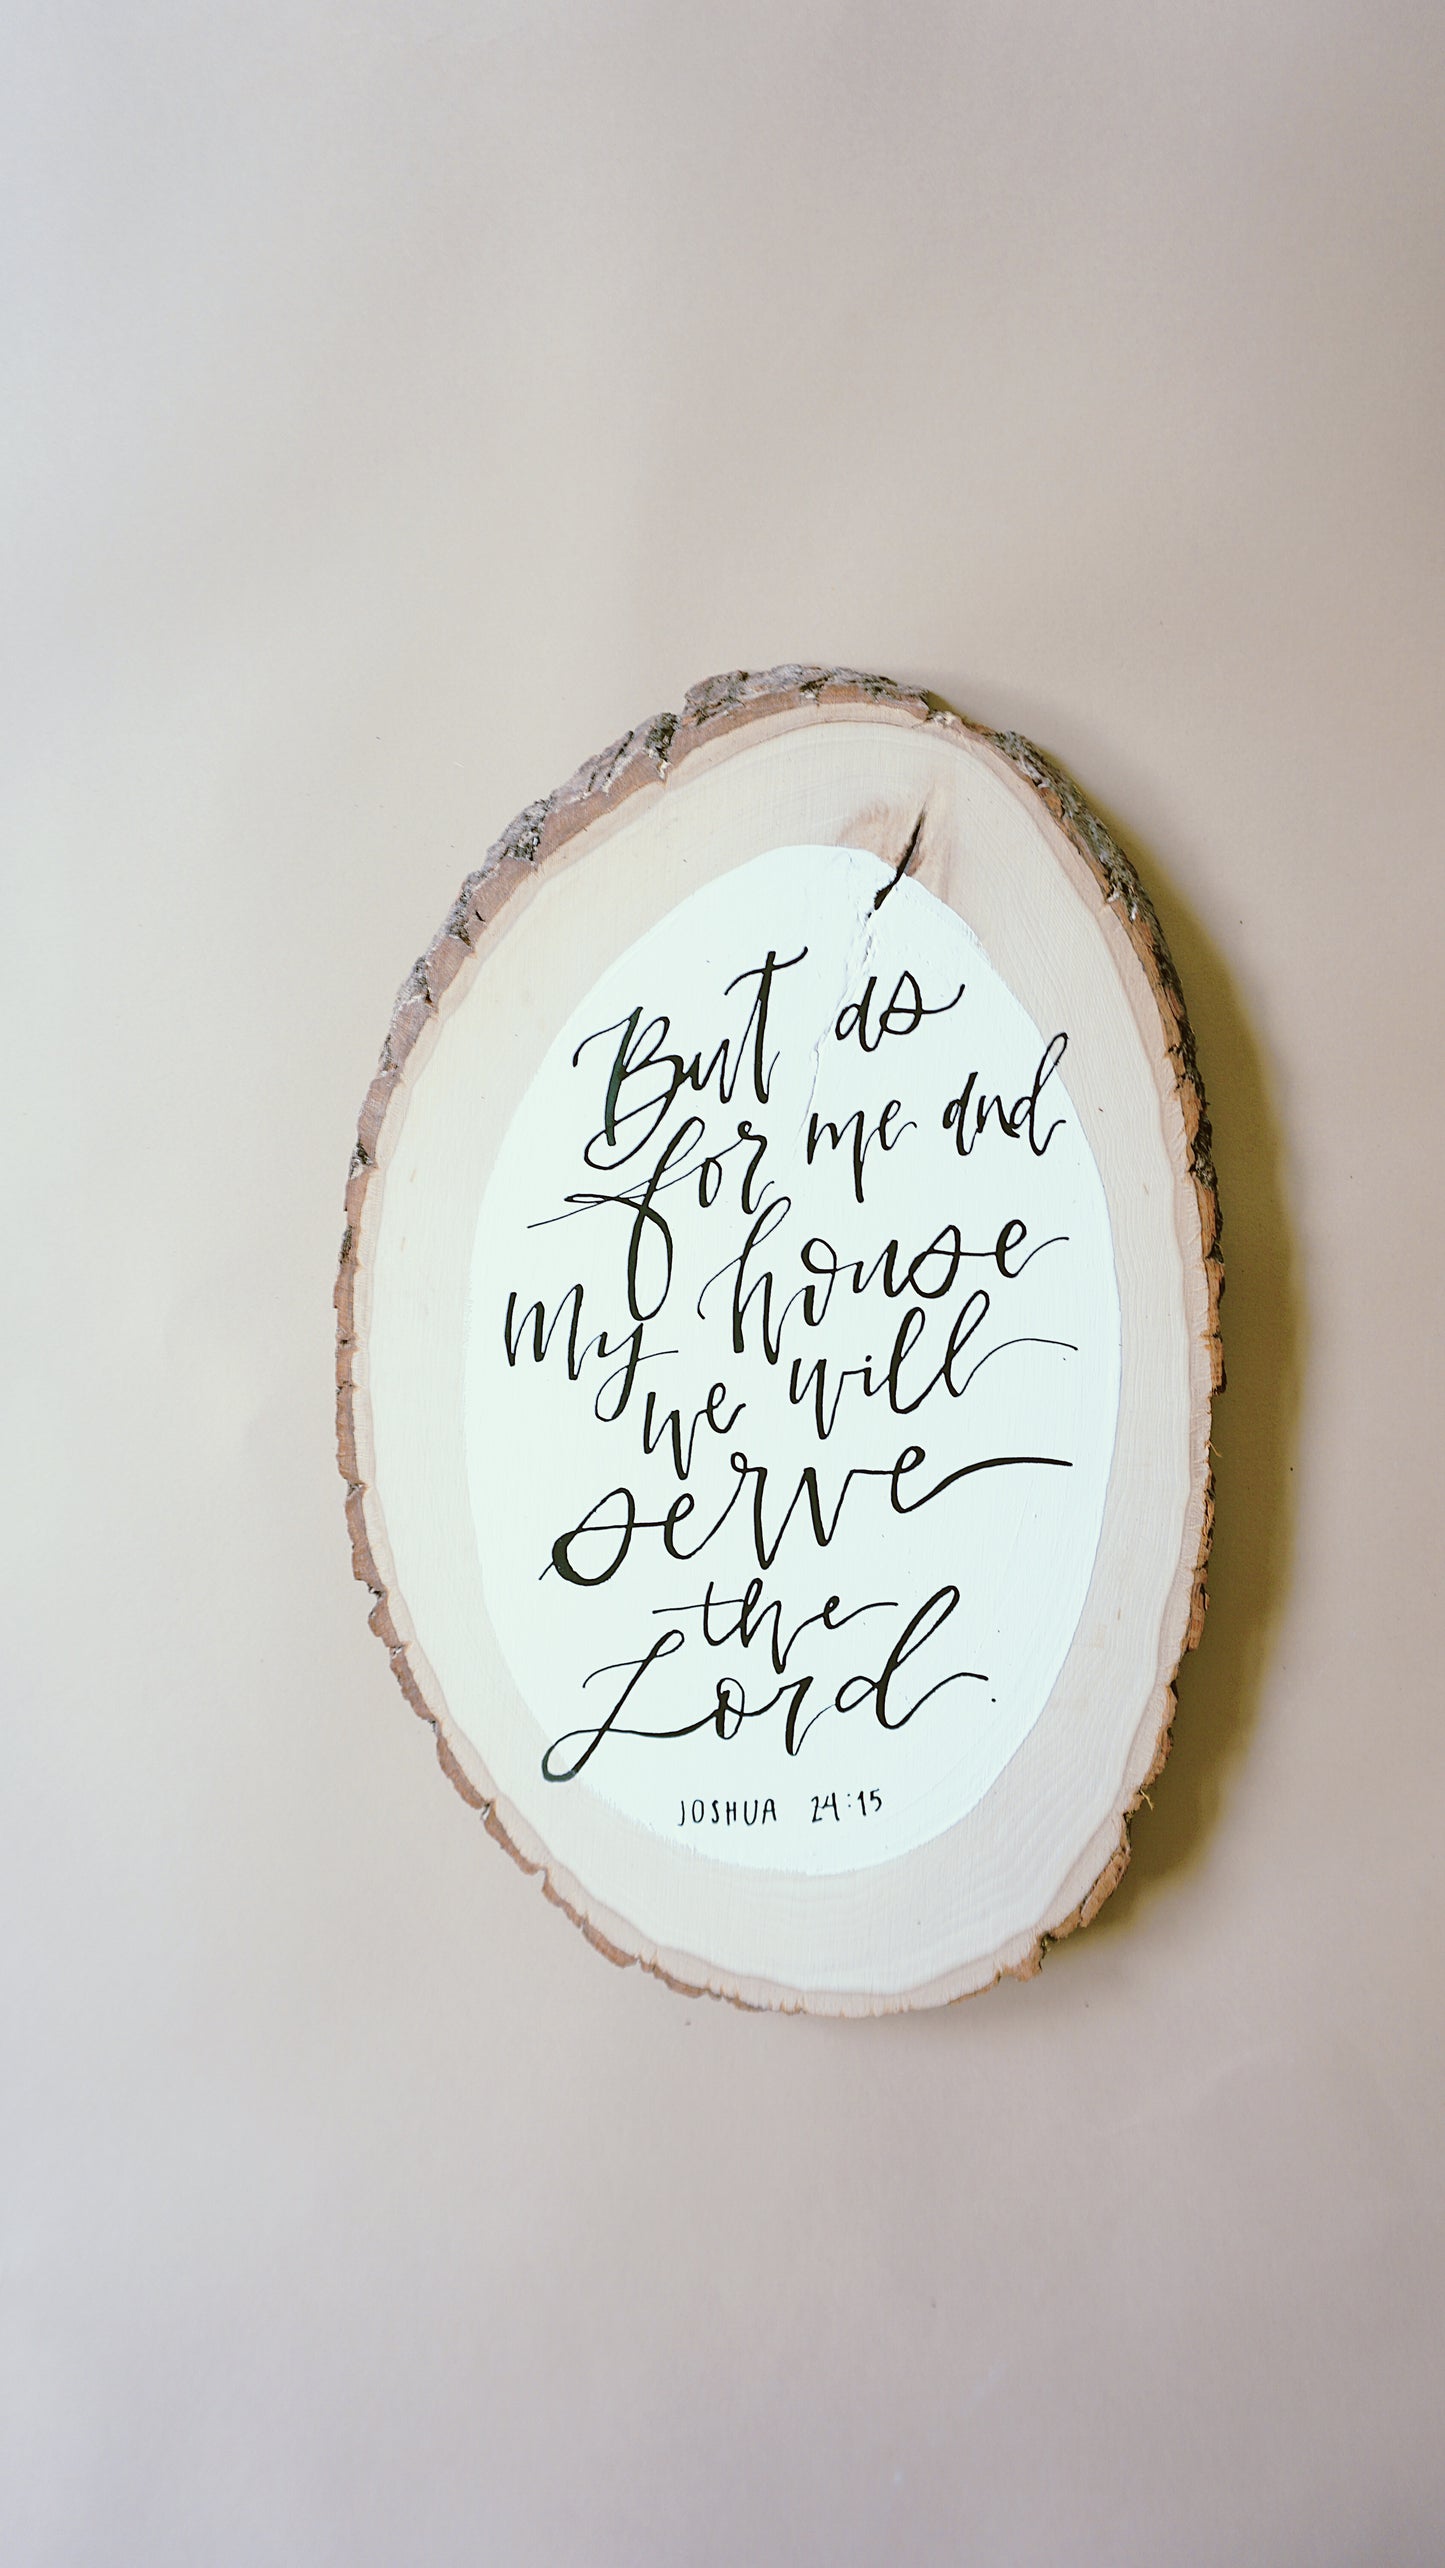 But as
for me and
my house
we will
serve
the
Lord.
JOSHUA 24:15